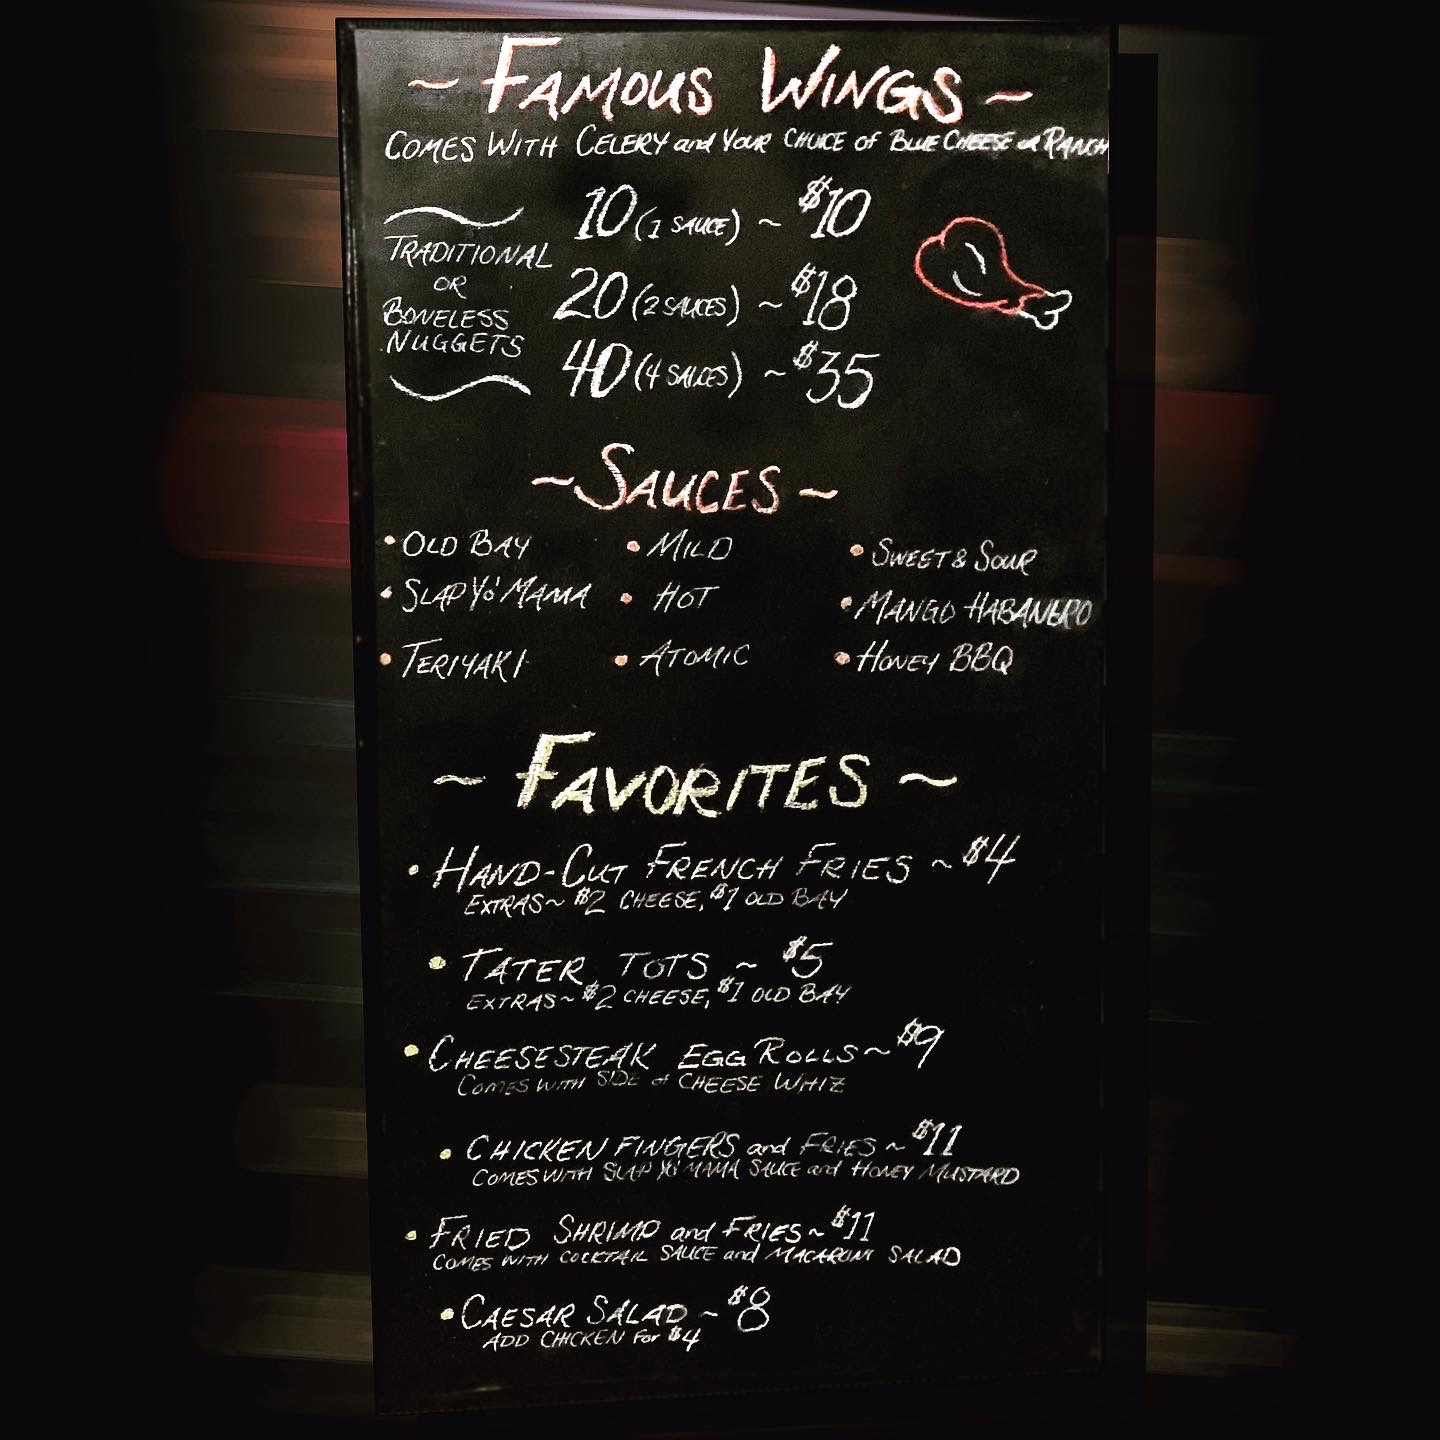 ~ FAMOUS WINGS ~
COMES WITH CELERY and YOUR CHOICE of BLUE CHEESE or RANCH
TRADITIONAL
OR
BONELESS
NUGGETS
10 (1 SAUCE) ~ $10
20 (2 SAUCES) ~ $18
40 (4 SAUCES) ~ $35
~ SAUCES ~
• OLD BAY
• SLAP YO' MAMA
• TERIYAKI
• MILD
• HOT
• ATOMIC
• SWEET & SOUR
• MANGO HABANERO
• HONEY BBQ
~ FAVORITES ~
• HAND-CUT FRENCH FRIES ~ $4
EXTRAS ~ $2 CHEESE, $1 OLD BAY
• TATER TOTS ~ $5
EXTRAS ~ $2 CHEESE, $1 OLD BAY
• CHEESESTEAK EGG ROLLS ~ $9
COMES WITH SIDE of CHEESE WHIZ
• CHICKEN FINGERS and FRIES ~ $11
COMES WITH SLAP YO' MAMA SAUCE and HONEY MUSTARD
• FRIED SHRIMP and FRIES ~ $11
COMES WITH COCKTAIL SAUCE and MACARONI SALAD
• CAESAR SALAD ~ $8
ADD CHICKEN For $4